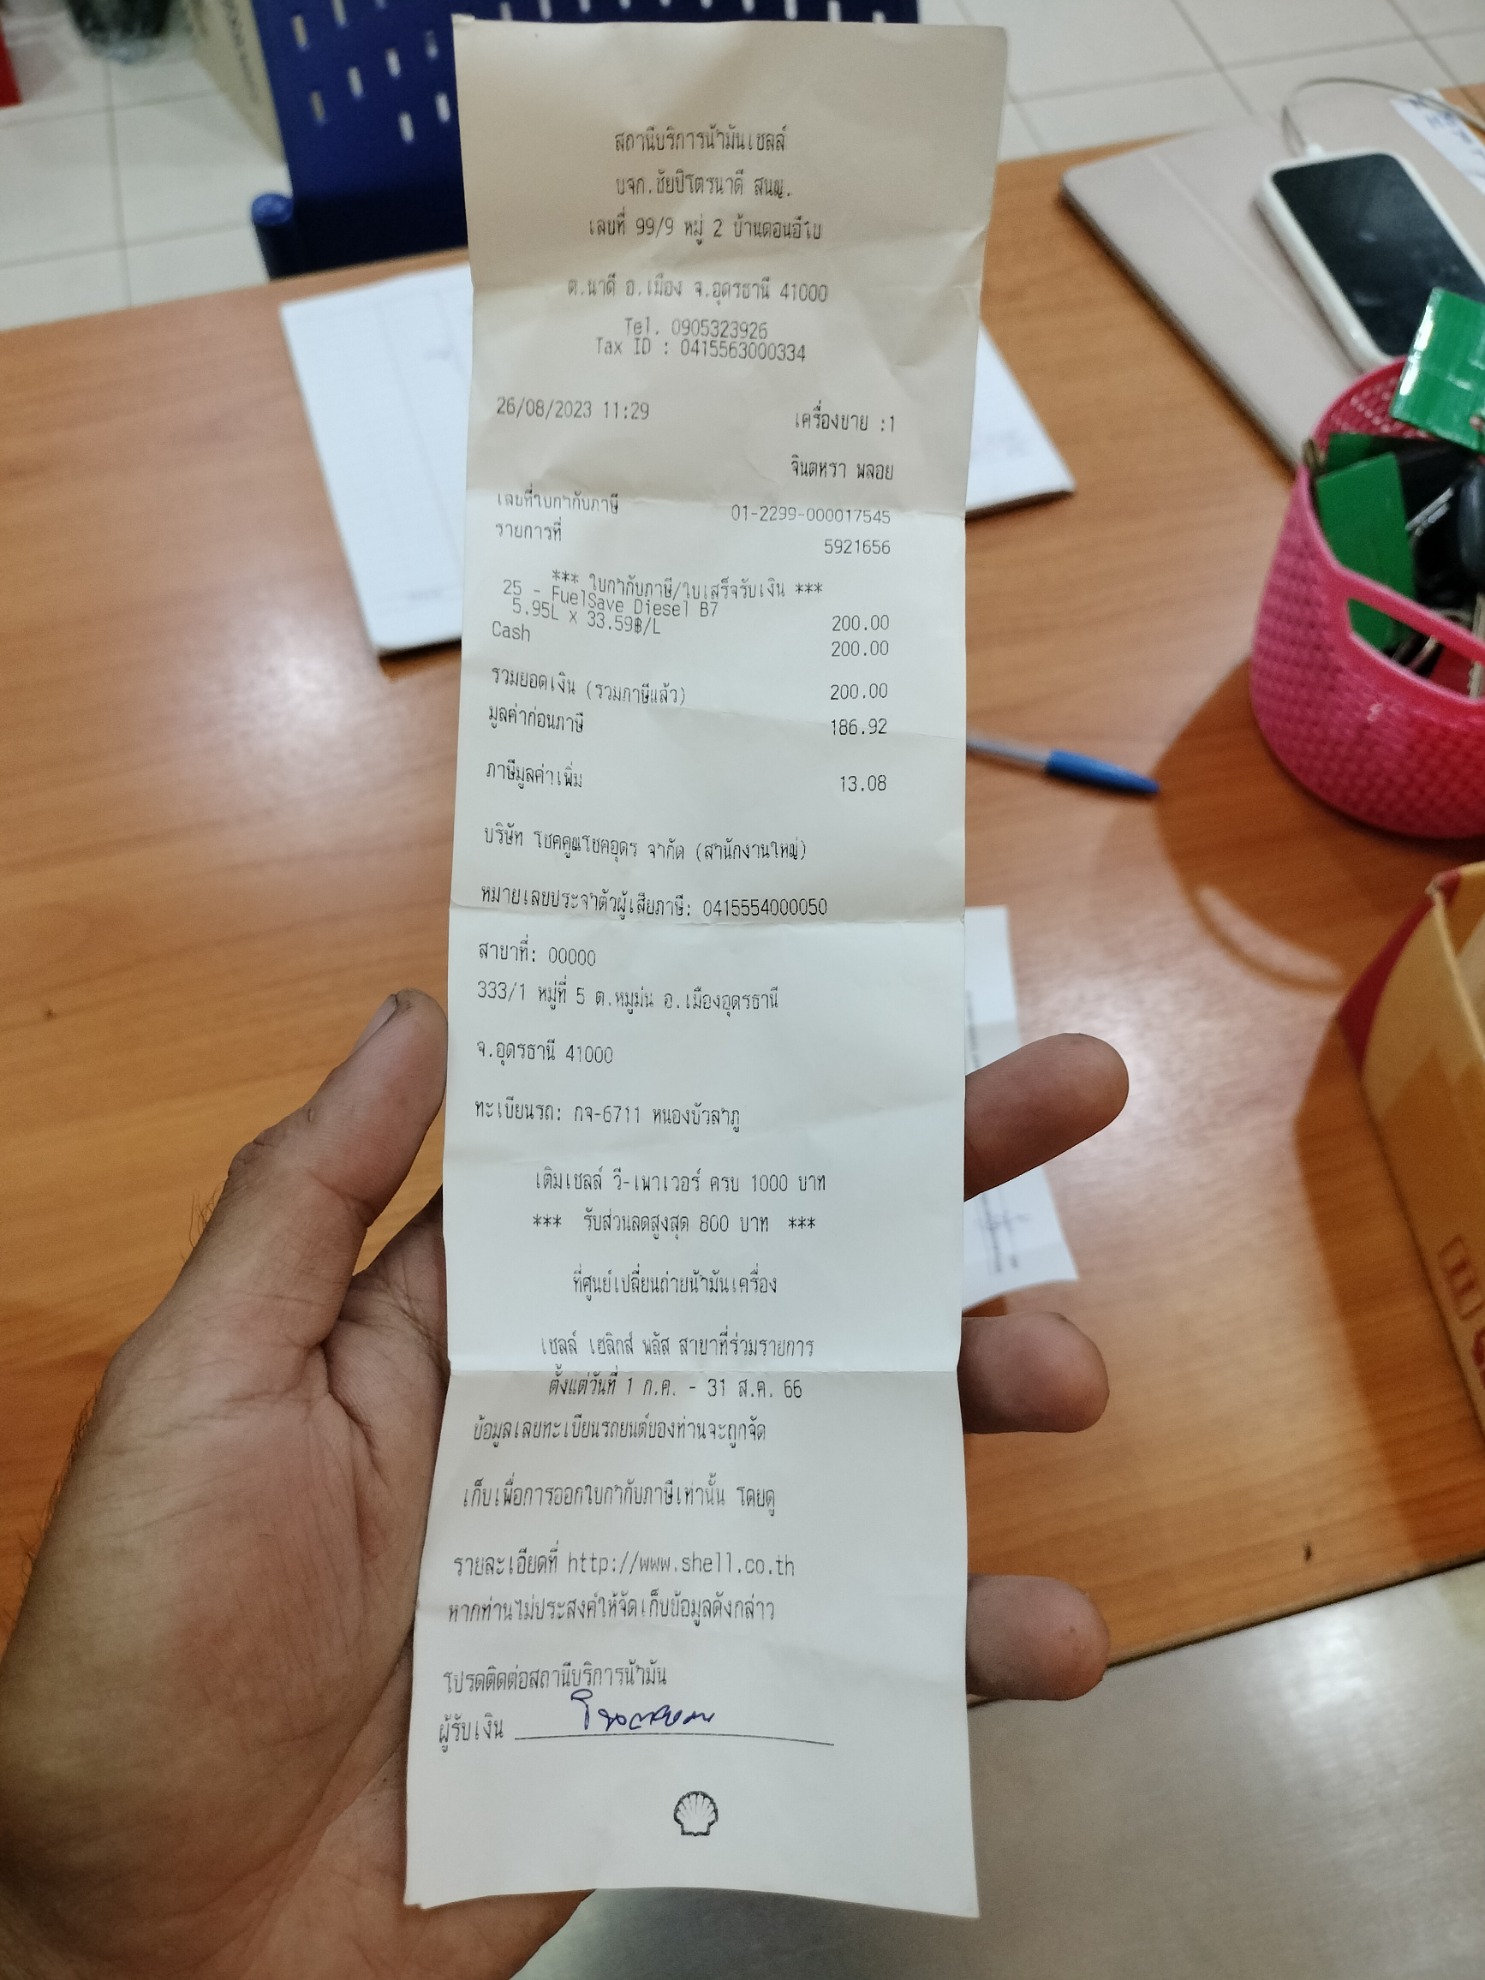 สถานีบริการน้ำมันเชลล์
บจก.ชัยปิโตรนาดี สนญ.
เลขที่ 99/9 หมู่ 2 บ้านดอนอีไข
ต.นาดี อ.เมือง จ.อุดรธานี 41000
Tel. 0905323926
Tax ID : 0415563000334
26/08/2023 11:29 เครื่องขาย :1
จินตหรา พลอย
เลขที่ใบกำกับภาษี 01-2299-000017545
รายการที่ 5921656
*** ใบกำกับภาษี/ใบเสร็จรับเงิน ***
25 - FuelSave Diesel B7
5.95L x 33.59฿/L 200.00
Cash 200.00
รวมยอดเงิน (รวมภาษีแล้ว) 200.00
มูลค่าก่อนภาษี 186.92
ภาษีมูลค่าเพิ่ม 13.08
บริษัท โชคคูณโชคอุดร จำกัด (สำนักงานใหญ่)
หมายเลขประจำตัวผู้เสียภาษี: 0415554000050
สาขาที่: 00000
333/1 หมู่ที่ 5 ต.หมูม่น อ.เมืองอุดรธานี
จ.อุดรธานี 41000
ทะเบียนรถ: กจ-6711 หนองบัวลำภู
เติมเชลล์ วี-เพาเวอร์ ครบ 1000 บาท
*** รับส่วนลดสูงสุด 800 บาท ***
ที่ศูนย์เปลี่ยนถ่ายน้ำมันเครื่อง
เชลล์ เฮลิกส์ พลัส สาขาที่ร่วมรายการ
ตั้งแต่วันที่ 1 ก.ค. - 31 ส.ค. 66
ข้อมูลเลขทะเบียนรถยนต์ของท่านจะถูกจัด
เก็บเพื่อการออกใบกำกับภาษีเท่านั้น โดยดู
รายละเอียดที่ http://www.shell.co.th
หากท่านไม่ประสงค์ให้จัดเก็บข้อมูลดังกล่าว
โปรดติดต่อสถานีบริการน้ำมัน
ผู้รับเงิน